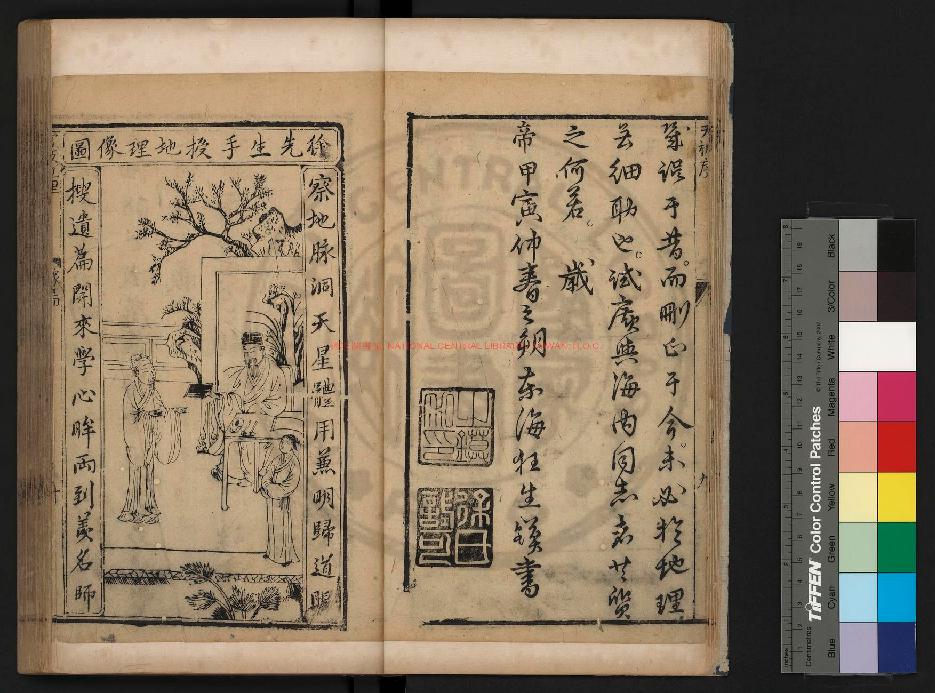 幾誤于昔而刪正于今未必於地理
云細助也試廣與海內同志者共質
之何若 歲
帝甲寅仲春之朔東海狂生鍈書
徐先生手授地理像圖
察地脉洞天星體用兼明歸道眼
搜遺篇開來學心眸兩到羨名師
NATIONAL CENTRAL LIBRARY, TAIWAN, R.O.C.
TIFFEN Color Control Patches
© The Tiffen Company
Centimetres
Inches
Blue
Cyan
Green
Yellow
Red
Magenta
White
3/Color
Black